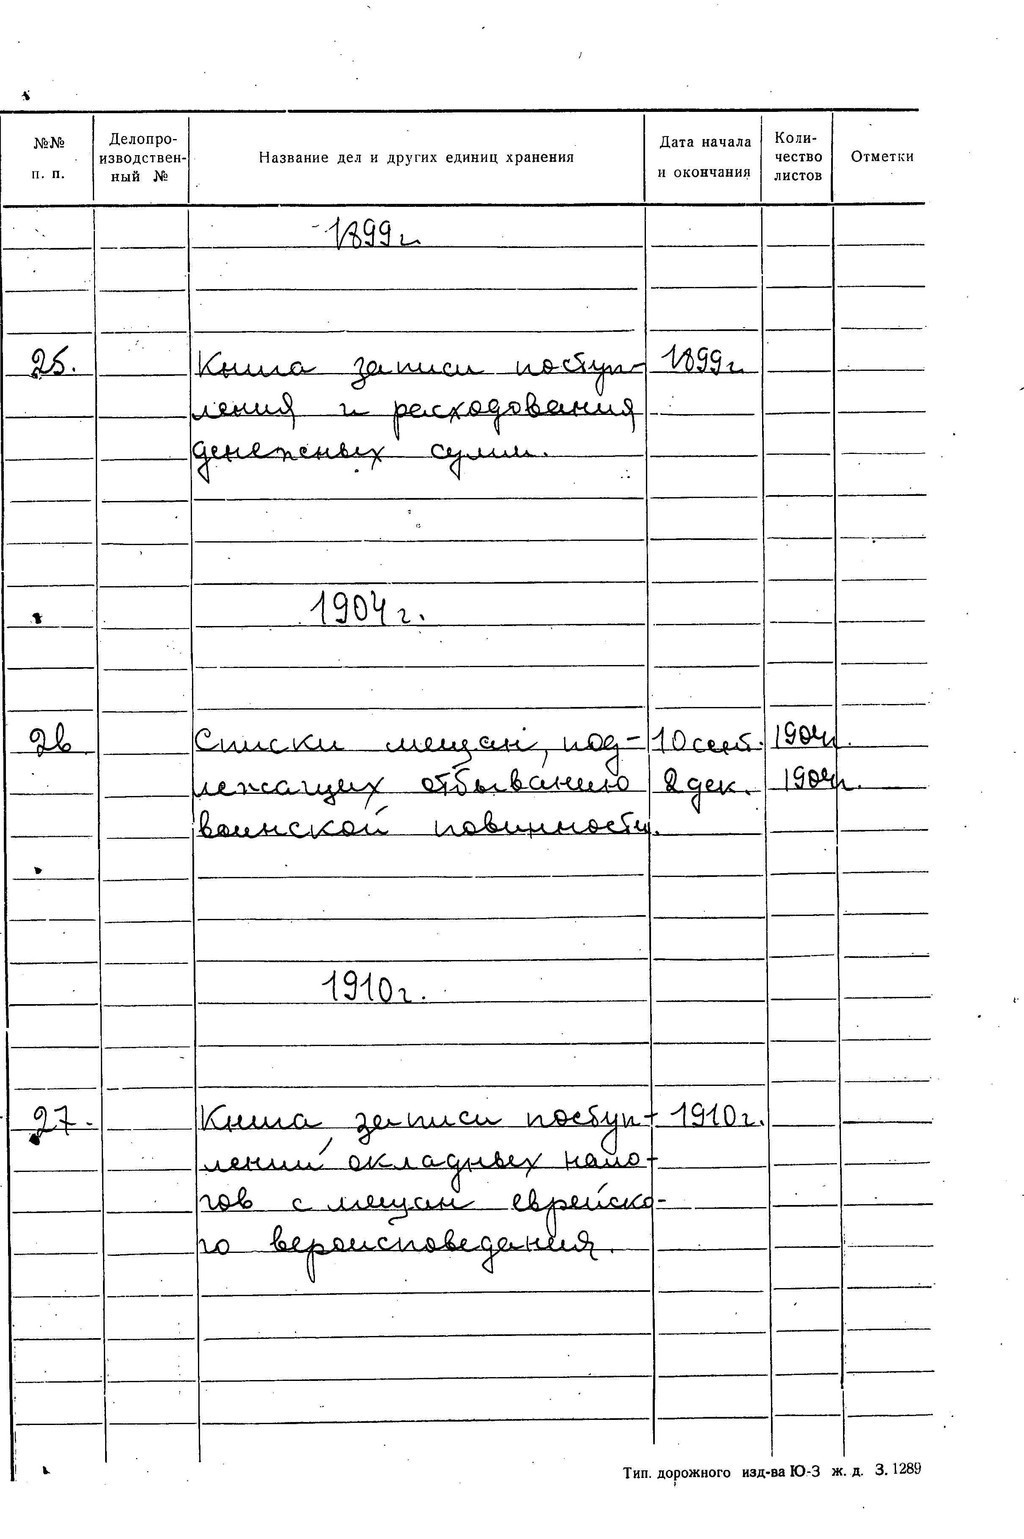 №№ п. п.
Делопро-
изводствен-
ный №
Название дел и других единиц хранения
Дата начала
и окончания
Коли-
чество
листов
Отметки
1899 г.
25. Книга записи поступ- 1899 г.
ления и расходования
денежных сумм.
1904 г.
26 Списки мещан, под- 10 сент. 1904 г.
лежащих отбыванию 2 дек. 1904 г.
воинской повинности.
1910 г.
27. Книга записи поступ- 1910 г.
лений окладных нало-
гов с мещан еврейско-
го вероисповедания.
Тип. дорожного изд-ва Ю-З ж. д. З. 1289